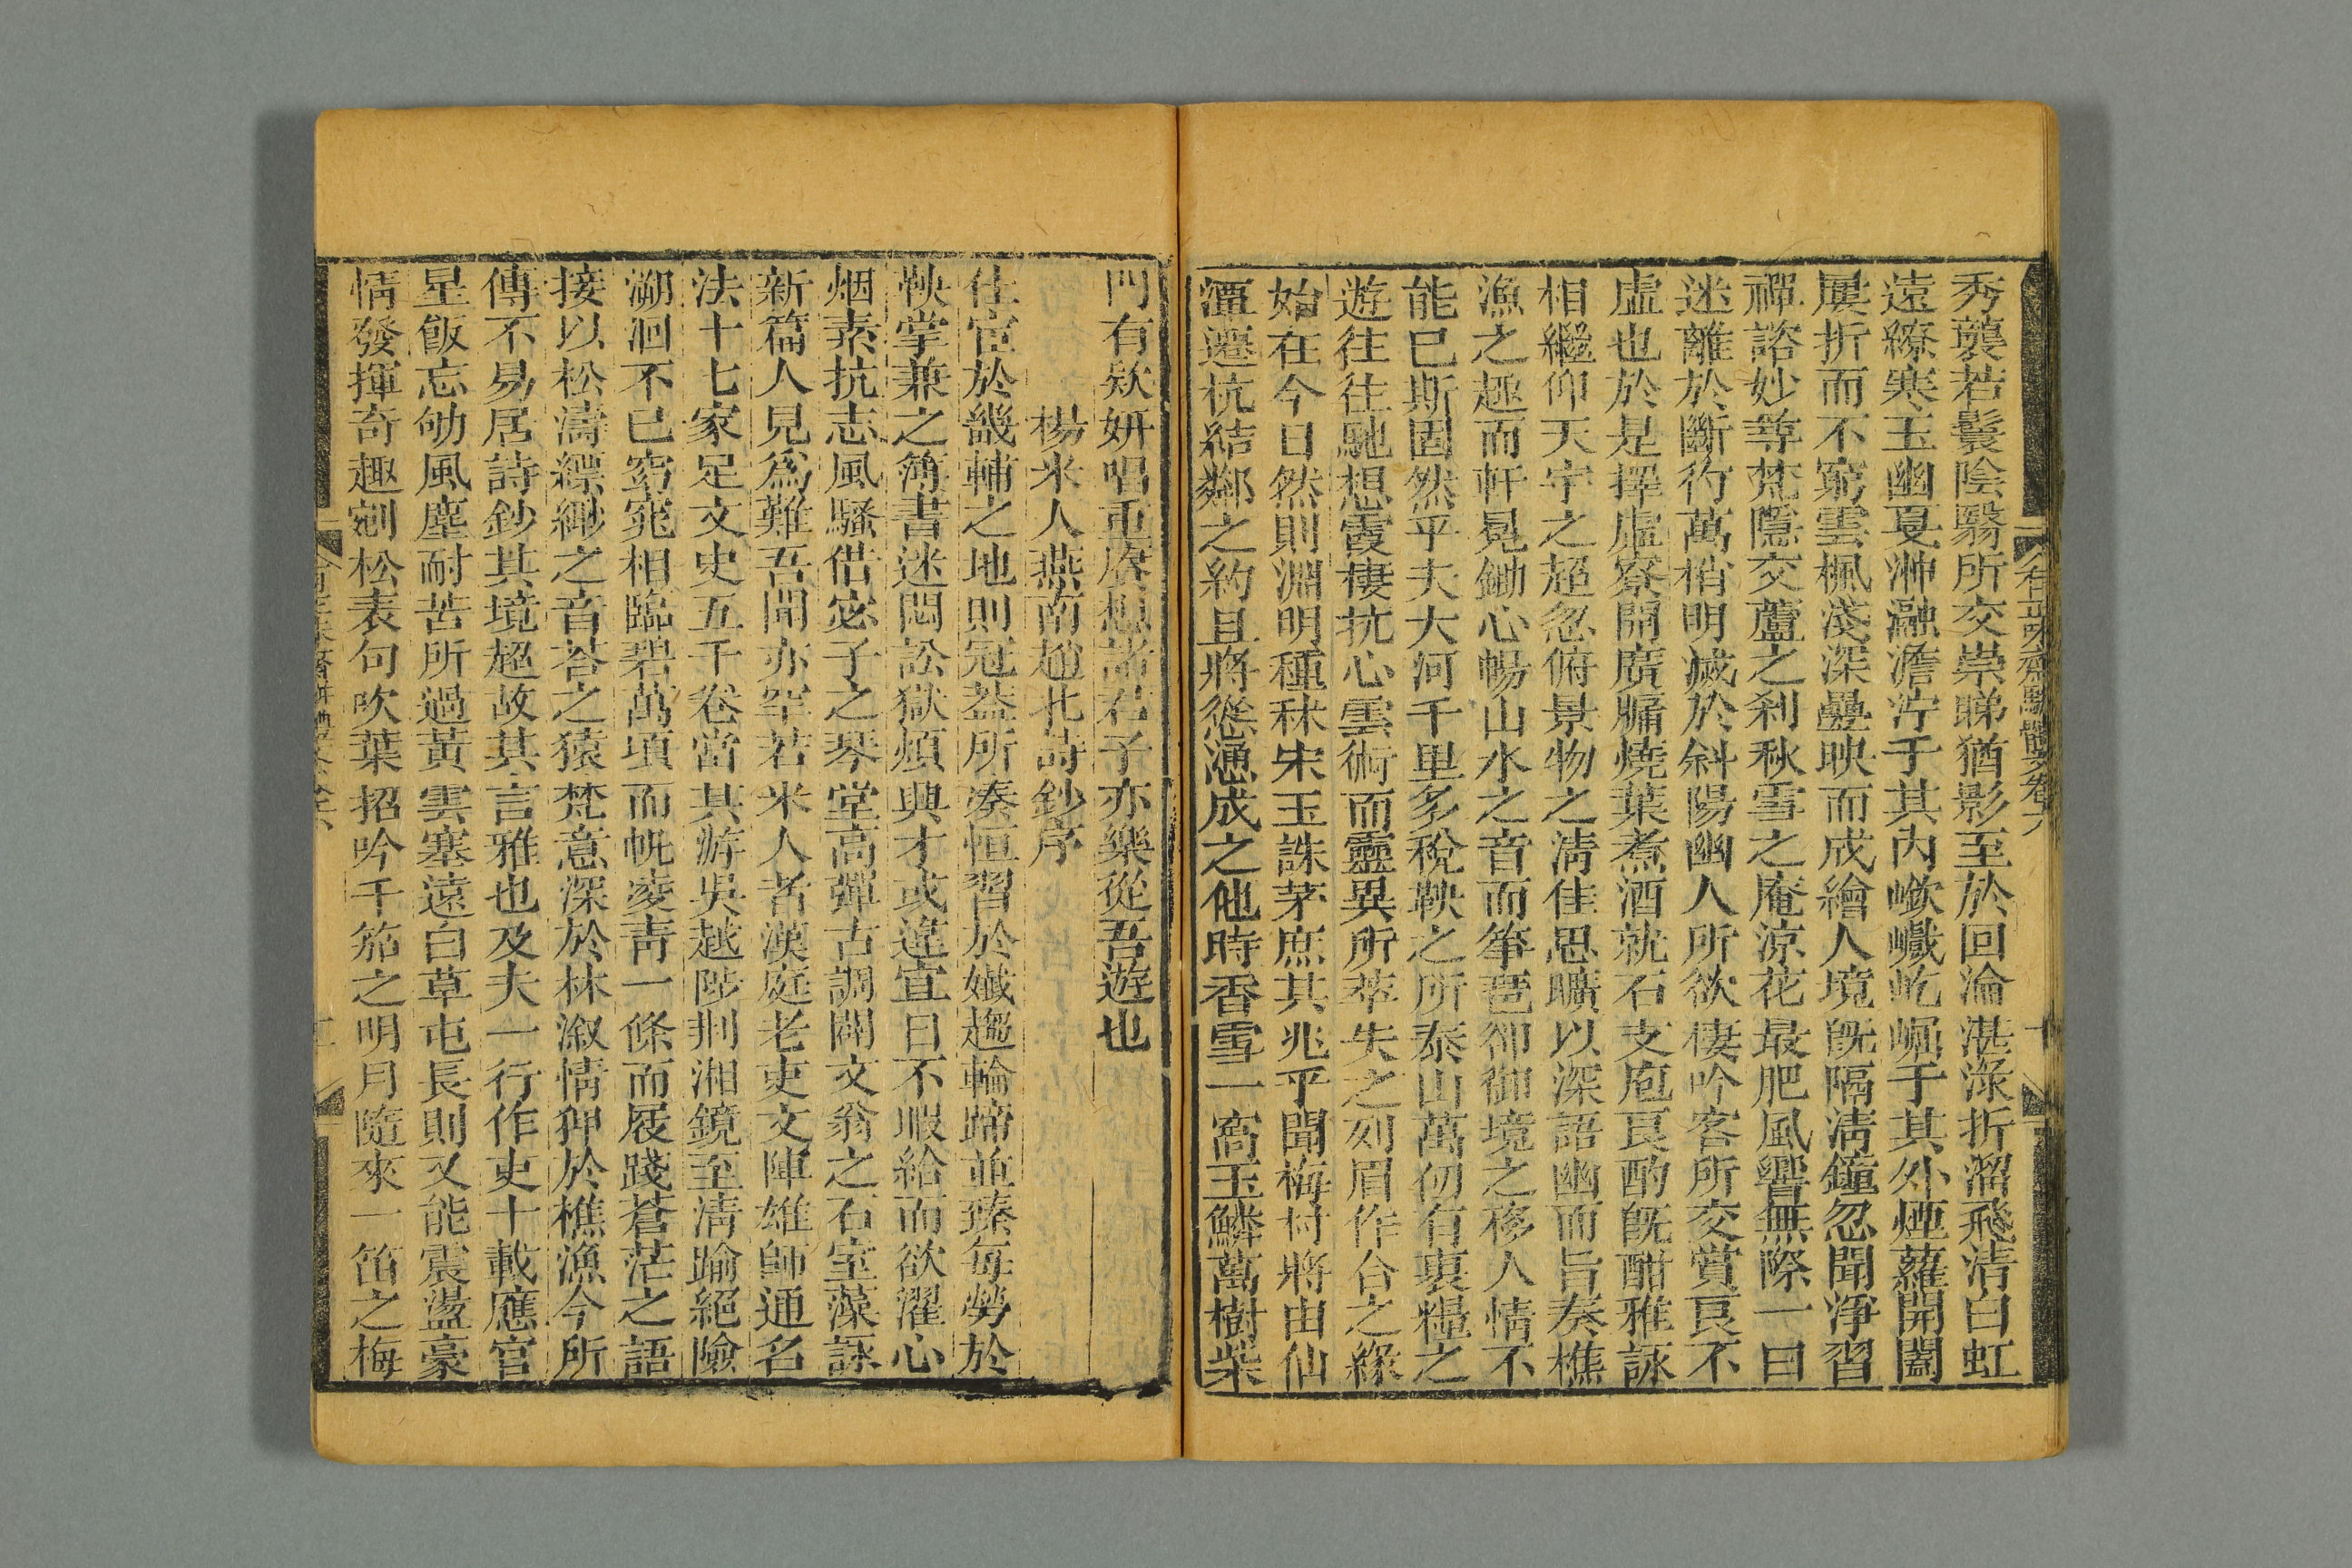 秀襲若鬟陰翳所交崇睇猶影至於回淪湛淥折溜飛清白虹
遠繚寒玉幽戛沖瀜澹濘于其內嶔巇屹崛于其外煙蘿開闔
屢折而不窮雲楓淺深疊映而成繪人境旣隔清鐘忽聞淨習
禪諮妙等梵隱交蘆之刹秋雪之庵涼花最肥風響無際一曰
迷離於斷彴萬梢明滅於斜陽幽人所欲棲吟客所交賞良不
虛也於是擇虛寮開廣牖燒葉煮酒就石支庖良酌旣酣雅詠
相繼仰天宇之超忽俯景物之淸佳思曠以深語幽而旨奏樵
漁之趣而軒冕鋤心暢山水之音而箏琶卻御境之移人情不
能已斯固然乎夫大河千里多稅鞅之所泰山萬仞有裹糧之
遊往往馳想霞棲抗心雲術而靈異所萃失之刻眉作合之緣
始在今日然則淵明種秫宋玉誅茅庶其兆乎聞梅村將由仙
潭遷杭結鄰之約且將慫恿成之他時香雪一窩玉鱗萬樹柴
門有款妍唱重賡想諸君子亦樂從吾遊也
楊米人燕南趙北詩鈔序
仕宦於畿輔之地則冠蓋所湊恒習於孅趨輪蹄並臻每勞於
鞅掌兼之簿書迷悶訟獄煩興才或違宜日不暇給而欲濯心
烟素抗志風騷借宓子之琴堂高彈古調闢文翁之石室藻詠
新篇人見爲難吾聞亦罕若米人者漢庭老吏文陣雄師通名
法十七家足文史五千卷當其游吳越陟荆湘鏡至清踰絕險
溯洄不已窈窕相臨碧萬頃而帆凌青一條而屐踐蒼茫之語
接以松濤縹緲之音荅之猿梵意深於林漵情狎於樵漁今所
傳不易居詩鈔其境超故其言雅也及夫一行作吏十載應官
星飯忘劬風塵耐苦所過黃雲塞遠白草屯長則又能震盪豪
情發揮奇趣剜松表句吹葉招吟千笳之明月隨來一笛之梅